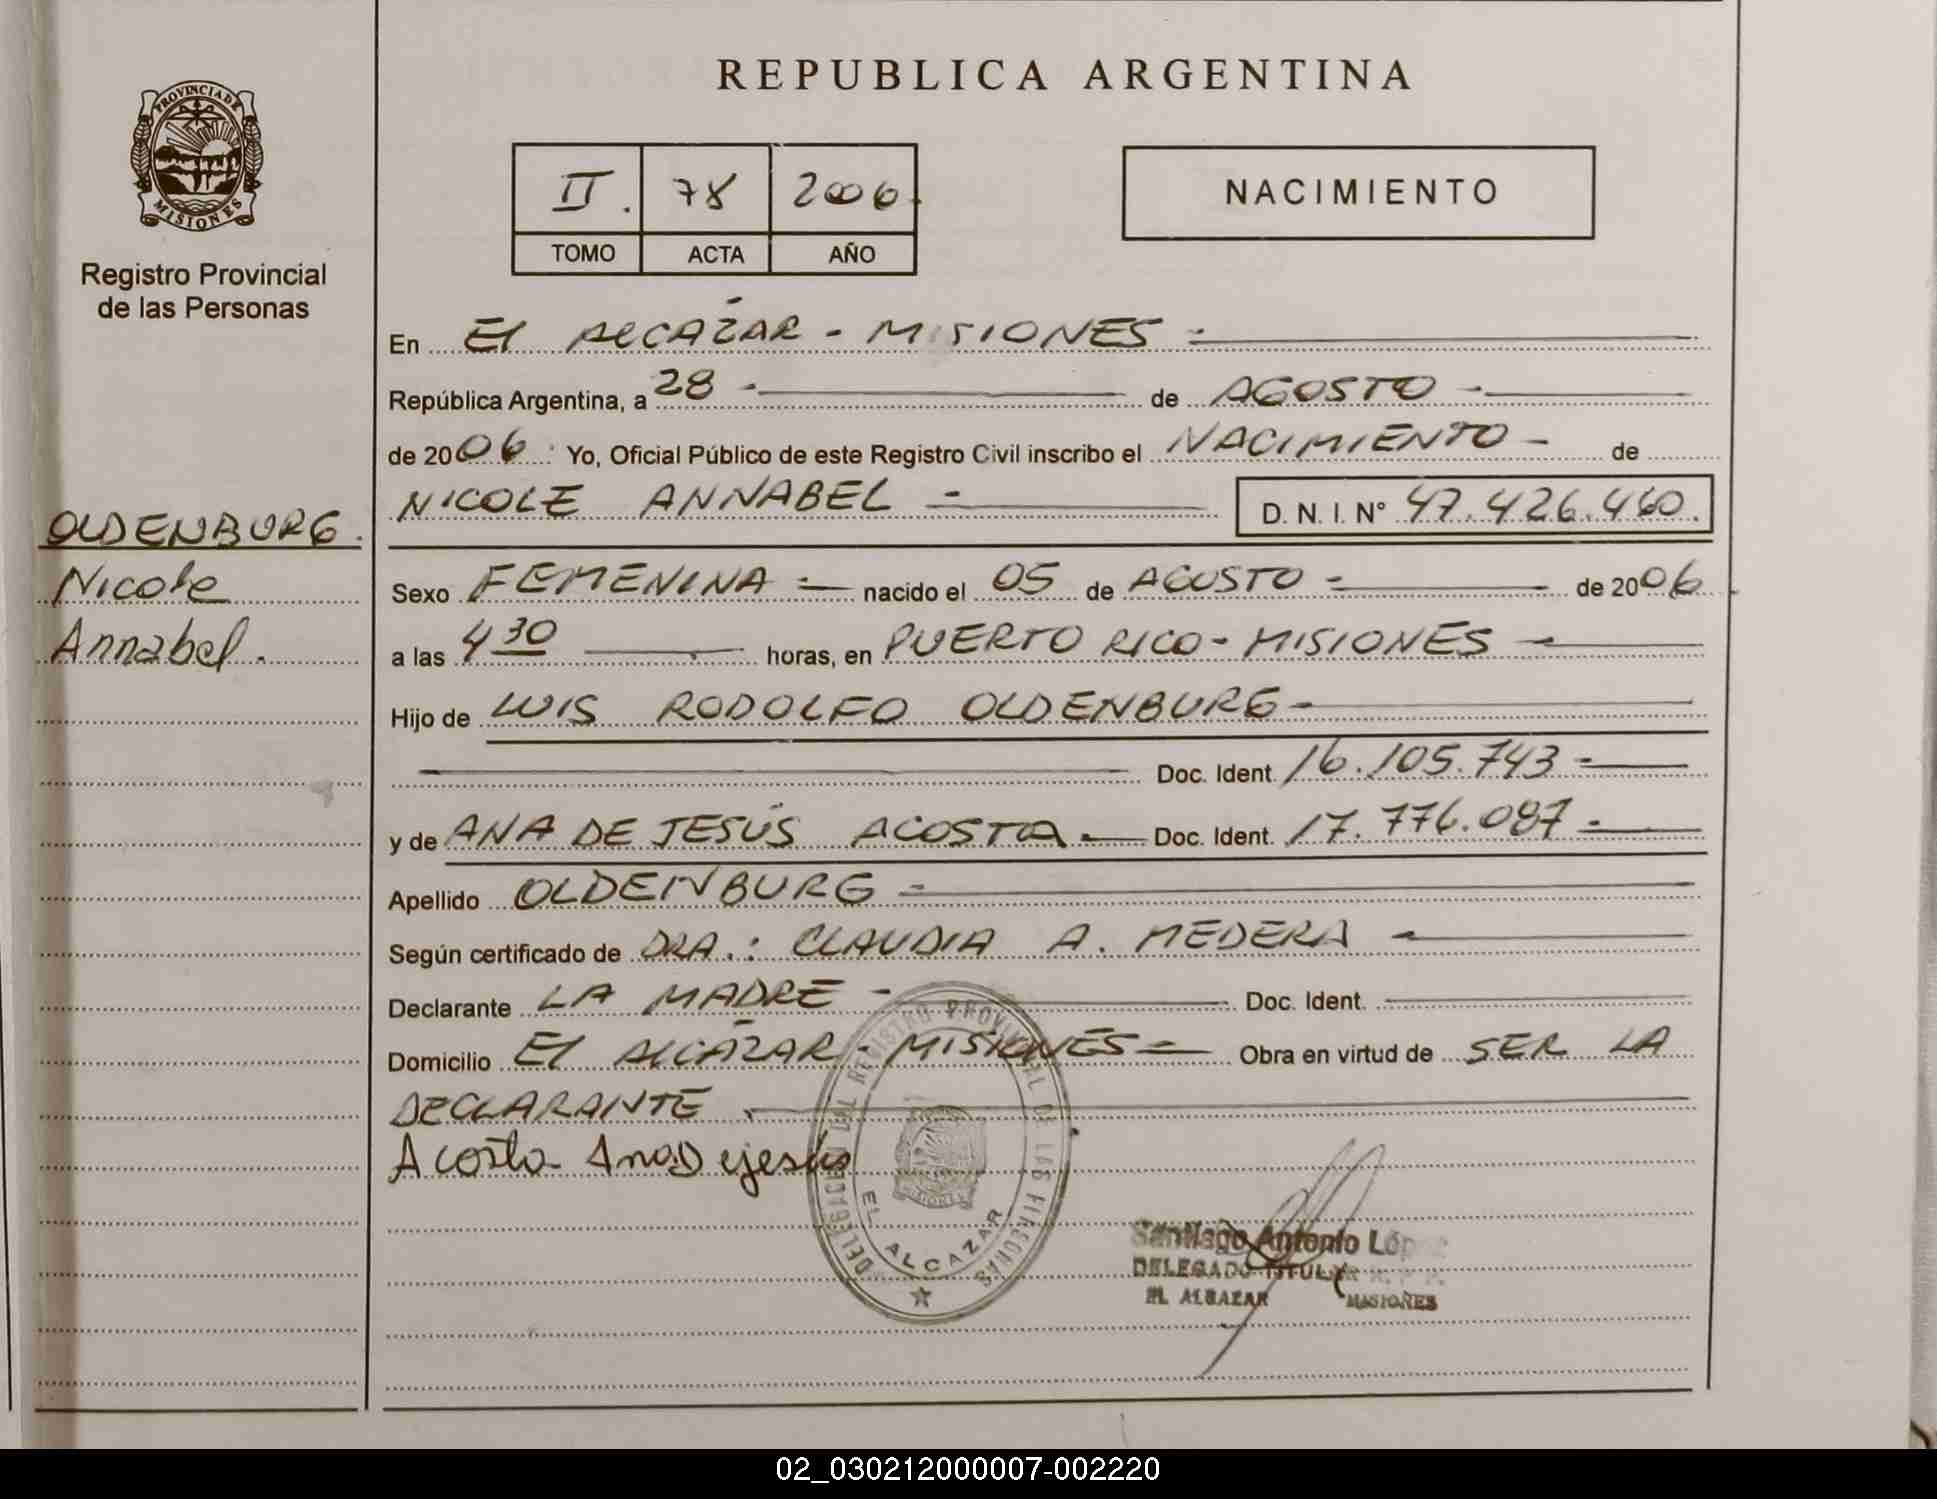 REPUBLICA ARGENTINA
PROVINCIA DE
MISIONES
Registro Provincial
de las Personas
II. 78 2006.
TOMO ACTA AÑO
NACIMIENTO
En El ALCÁZAR - MISIONES -
República Argentina, a 28 - de AGOSTO -
de 2006 Yo, Oficial Público de este Registro Civil inscribo el NACIMIENTO - de
NICOLE ANNABEL - D. N. I. N° 47.426.460.
OLDENBURG.
Nicole
Annabel.
Sexo FEMENINA - nacido el 05 de AGOSTO - de 2006.
a las 4 30 horas, en PUERTO RICO - MISIONES -
Hijo de LUIS RODOLFO OLDENBURG -
Doc. Ident. 16.105.743 -
y de ANA DE JESÚS ACOSTA - Doc. Ident. 17.776.087 -
Apellido OLDENBURG -
Según certificado de DRA.: CLAUDIA A. MEDERA -
Declarante LA MADRE - Doc. Ident.
Domicilio El ALCÁZAR - MISIONES - Obra en virtud de SER LA
DECLARANTE.
Acosta Ana Dejesús
DELEGACION DEL REGISTRO PROVINCIAL DE LAS PERSONAS
MISIONES
EL ALCAZAR
Santiago Antonio López
DELEGADO TITULAR R. P. P.
EL ALCAZAR MISIONES
02_030212000007-002220